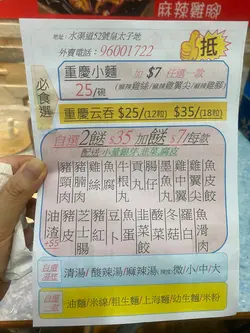 麻辣雞腳
地址: 水渠道52號皇太子地
外賣電話: 96001722
抵
必食選
重慶小麵 加 $7 任選一款
25/碗 (麻辣雞絲/麻辣雞翼尖/麻辣雞腳)
重慶云吞 $25/(12粒) $35/(18粒)
自選2餸 $35 加餸 $7/每款
配送小量銀牙,韭菜,腐皮
豬頸肉
豬腩肉
雞中翼
魚肉燒賣
牛根丸
貢丸
腸仔
墨魚丸
魚皮餃
雞翼尖
雞中亦
魚片
油渣+$5
豬皮
芝士腸
豬紅
豆卜
魚蛋
韭菜餃
菠菜
冬菇
蘿白
魚滑肉
自選湯底
清湯/ 酸辣湯/麻辣湯 (辣度) 微/小/中/大
自選麵底
油麵/米線/粗生麵/上海麵/幼生麵/米粉